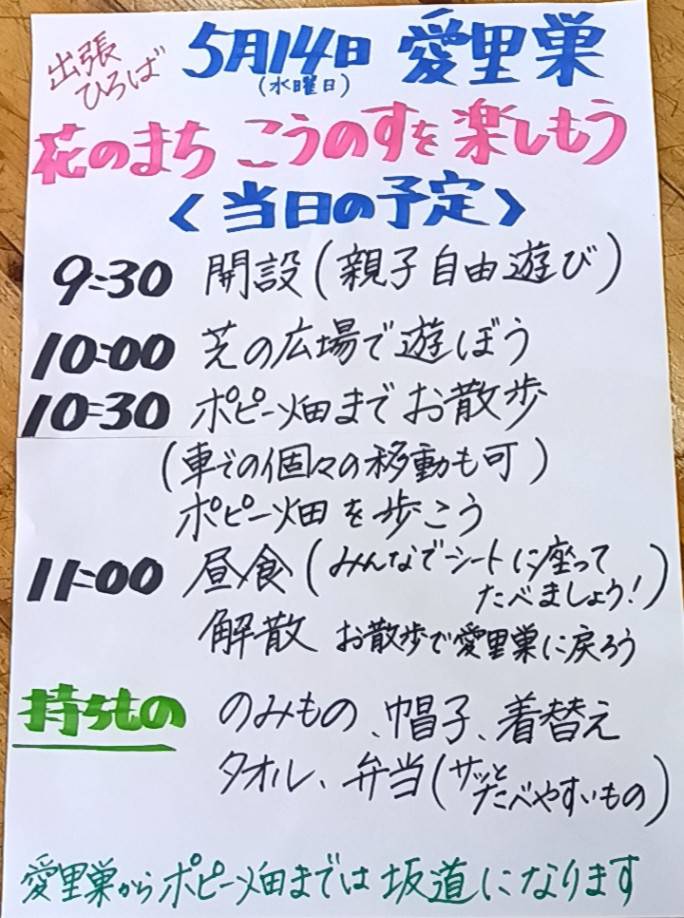 出張
ひろば
5月14日 愛里巣
(水曜日)
花のまち こうのすを楽しもう
<当日の予定>
9:30 開設(親子自由遊び)
10:00 芝の広場で遊ぼう
10:30 ポピー畑までお散歩
(車での個々の移動も可)
ポピー畑を歩こう
11:00 昼食(みんなでシートに座って
たべましょう!)
解散 お散歩で愛里巣に戻ろう
持ちもの のみもの、帽子、着替え
タオル、弁当(サッと
たべやすいもの)
愛里巣からポピー畑までは坂道になります